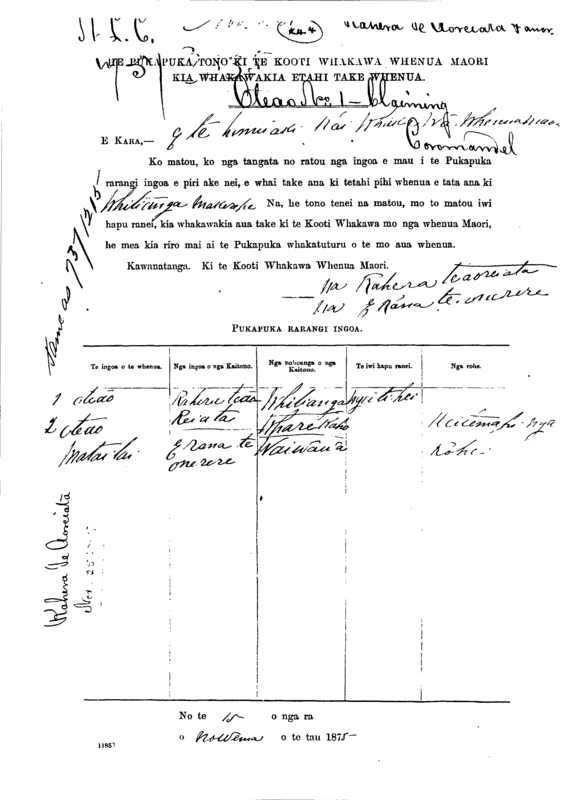 N. L. C.
Rahera Te Aoreiata & anor.
HE PUKAPUKA TONO KI TE KOOTI WHAKAWA WHENUA MAORI
KIA WHAKAWAKIA ETAHI TAKE WHENUA.
Oteao No. 1 — Claiming
Coromandel
E KARA,—
Ko matou, ko nga tangata no ratou nga ingoa e mau i te Pukapuka
rarangi ingoa e piri ake nei, e whai take ana ki tetahi pihi whenua e tata ana ki
Whitianga Na, he tono tenei na matou, mo to matou iwi
hapu ranei, kia whakawakia aua take ki te Kooti Whakawa mo nga whenua Maori,
he mea kia riro mai ai te Pukapuka whakatuturu o te mo aua whenua.
Kawanatanga. Ki te Kooti Whakawa Whenua Maori.
Na Rahera teaoreiata
Na Erana te onerere
Same as 737/1215
PUKAPUKA RARANGI INGOA.
Te ingoa o te whenua. Nga ingoa o nga Kaitono. Nga nohoanga o nga Kaitono. Te iwi hapu ranei. Nga rohe.
1 oteao Raheru teao Whitianga
2 oteao Reiata Wharekaho nga
matai tai Erana te Waiwawa rohei
onerere
Rahera Te Aoreiata
No te 15 o nga ra
o Nowema o te tau 1875—
11857